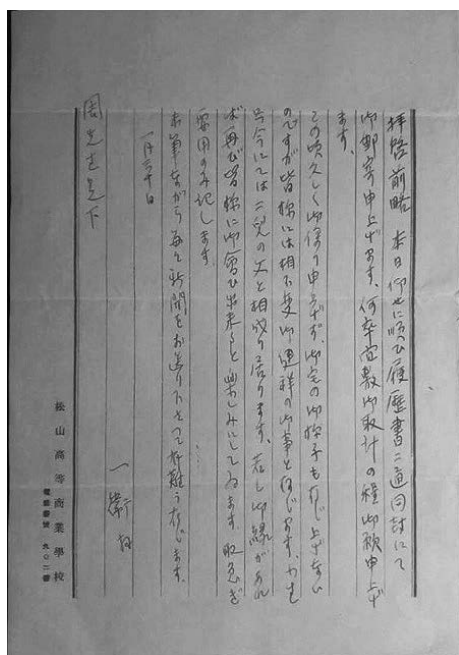 拝啓 前略 本日 仰せに順ひ履歴書二通同封にて
御郵寄申上げます。何卒宜敷御取計の程御願申上げ
ます。
この頃久しく御便り申さず、御宅の御様子も存じ上げない
のですが皆様には相不変御健祥の御事と存じます。小生
今にては二児の父と相成り居ります。若し御縁があれ
ば再び皆様に御会ひ出来ると楽しみにしてゐます。取急ぎ
要用のみ記します。
末筆ながら毎々新聞をお送り下さって有難う存じます。
一月三十日
一衛
周先生
松山高等商業學校
電話番號 九〇二番